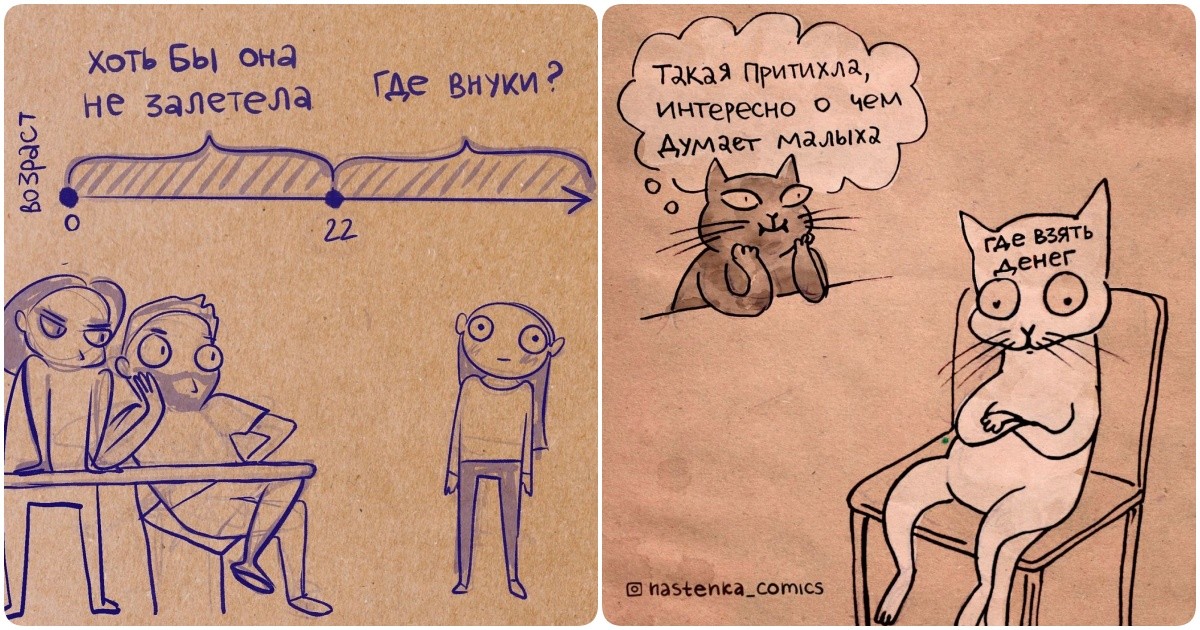 хоть бы она
не залетела
где внуки?
возраст
0
22
Такая притихла,
интересно о чем
думает малыха
где взять
денег
nastenka_comics